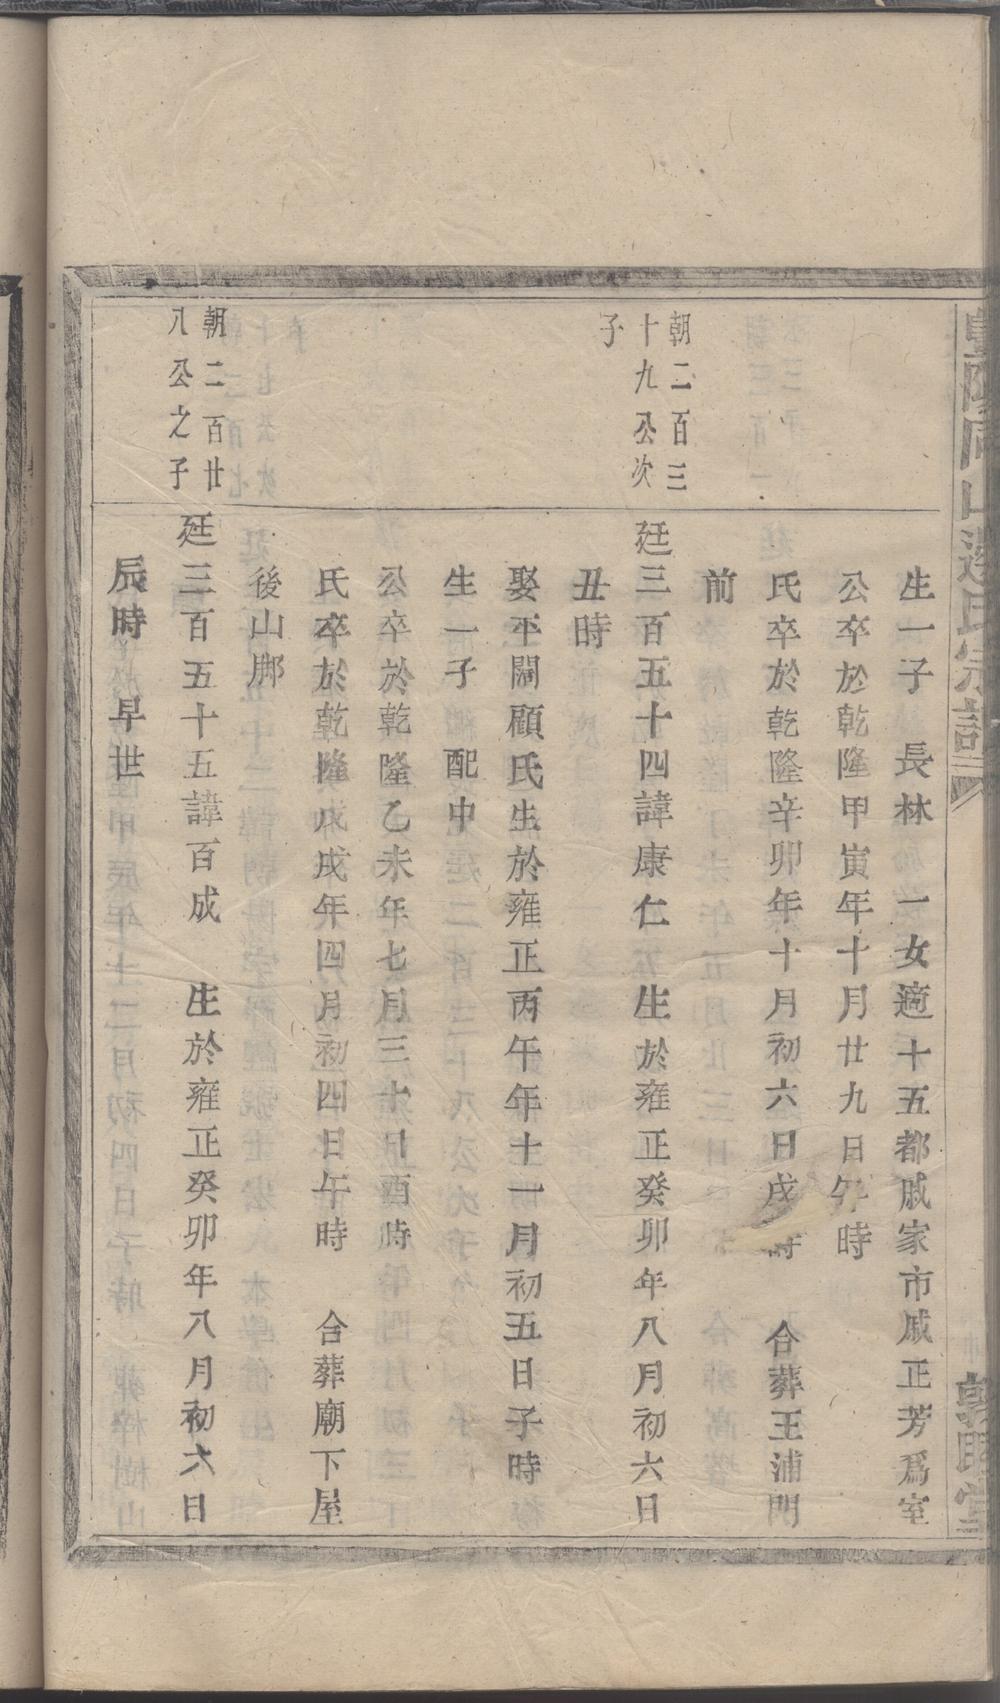 生一子 長林 一女適十五都戚家市戚正芳爲室
公卒於乾隆甲寅年十月廿九日午時
氏卒於乾隆辛卯年十月初六日戌時 合葬王浦門
前
朝二百三
十九公次
子
廷三百五十四諱康仁 生於雍正癸卯年八月初六日
丑時
娶平關顧氏生於雍正丙午年十一月初五日子時
生一子 配中
公卒於乾隆乙未年七月三十日酉時
氏卒於乾隆戊戌年四月初四日午時 合葬廟下屋
後山脚
朝二百廿
八公之子
廷三百五十五諱百成 生於雍正癸卯年八月初六日
辰時早世